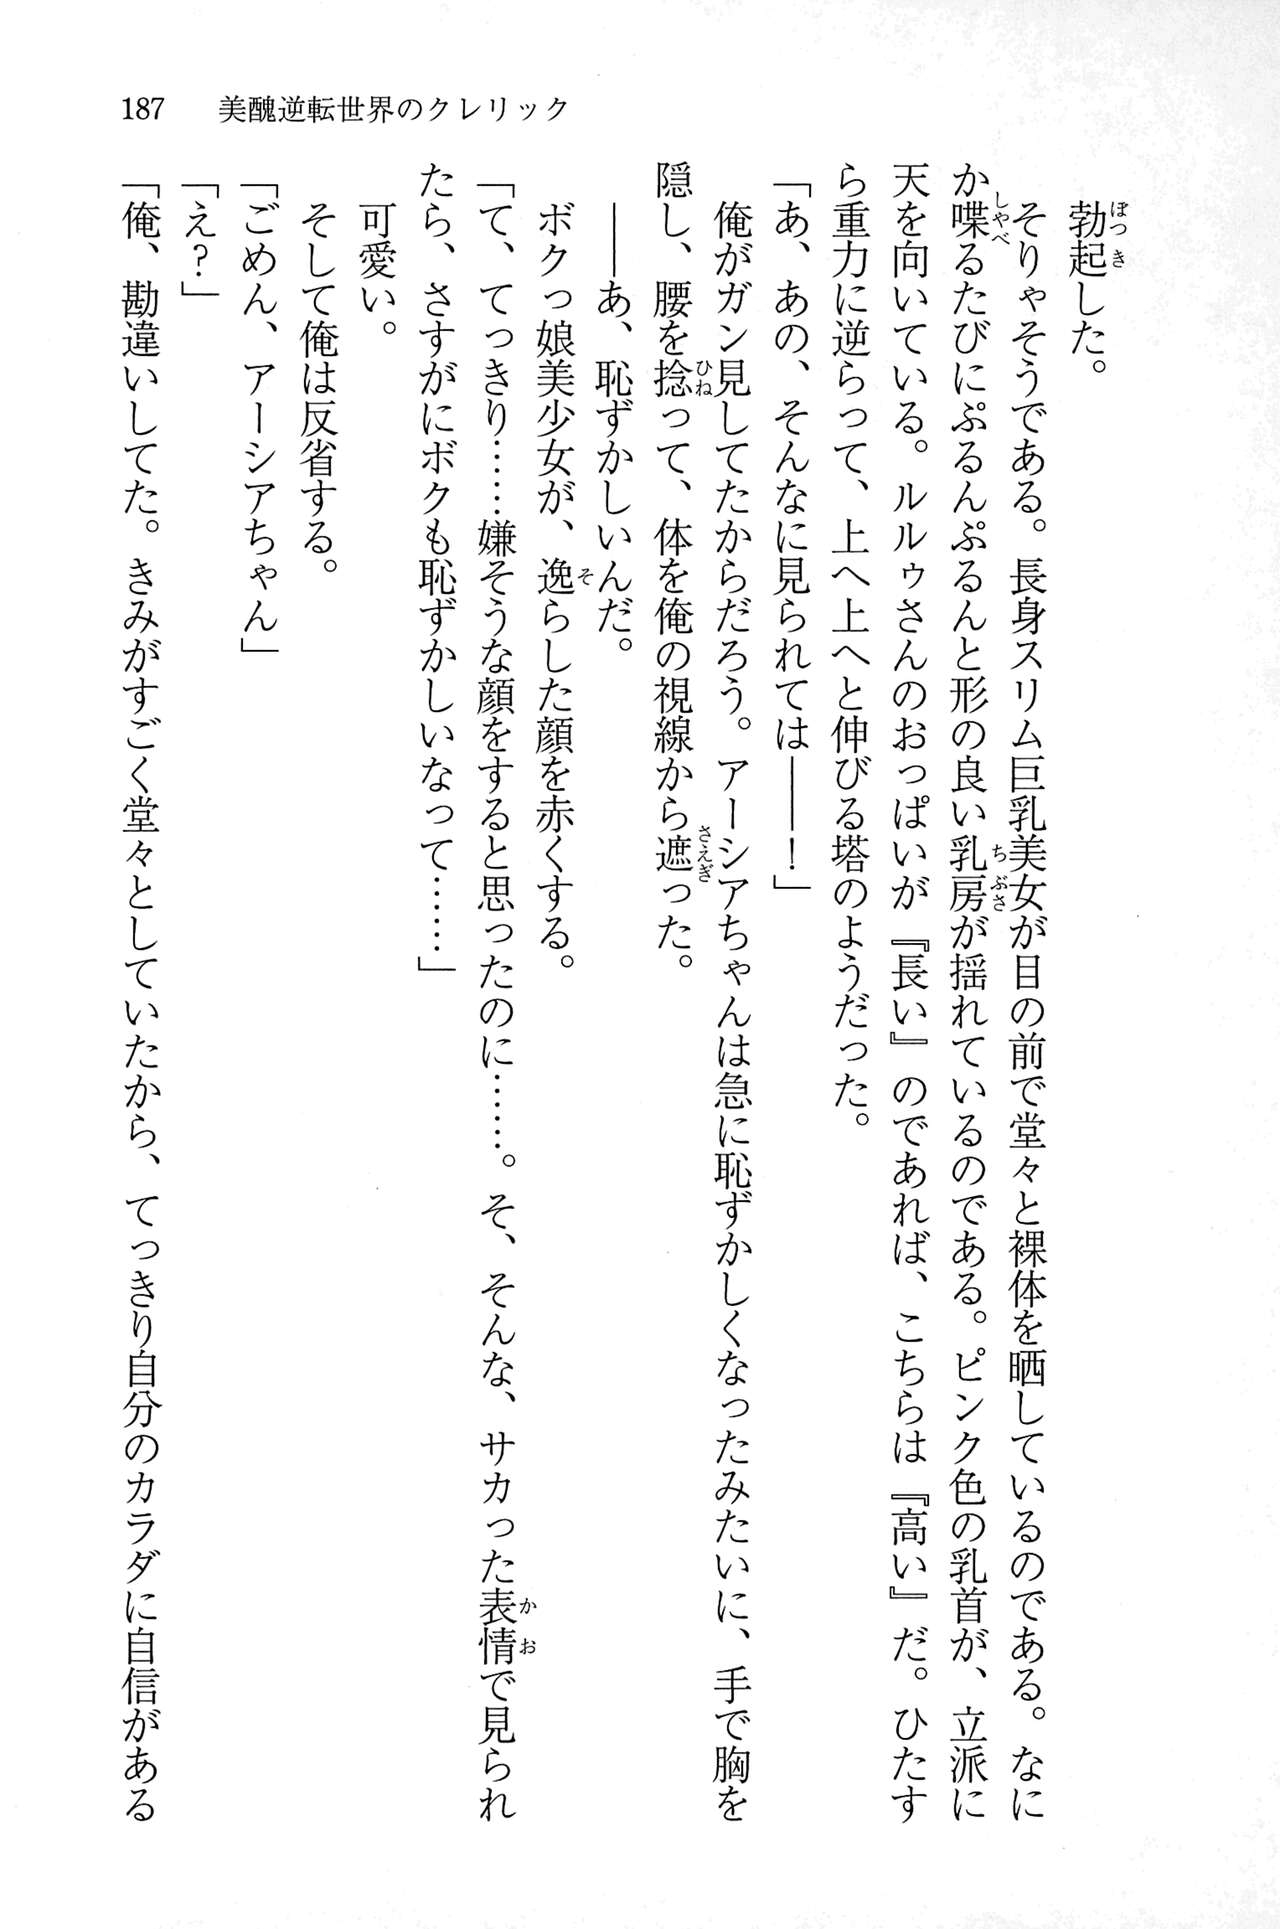 187　美醜逆転世界のクレリック
　勃起した。
　そりゃそうである。長身スリム巨乳美女が目の前で堂々と裸体を晒しているのである。なに
か喋るたびにぷるんぷるんと形の良い乳房が揺れているのである。ピンク色の乳首が、立派に
天を向いている。ルルゥさんのおっぱいが『長い』のであれば、こちらは『高い』だ。ひたす
ら重力に逆らって、上へ上へと伸びる塔のようだった。
「あ、あの、そんなに見られては――！」
　俺がガン見してたからだろう。アーシアちゃんは急に恥ずかしくなったみたいに、手で胸を
隠し、腰を捻って、体を俺の視線から遮った。
　――あ、恥ずかしいんだ。
　ボクっ娘美少女が、逸らした顔を赤くする。
「て、てっきり……嫌そうな顔をすると思ったのに……。そ、そんな、サカった表情で見られ
たら、さすがにボクも恥ずかしいなって……」
　可愛い。
　そして俺は反省する。
「ごめん、アーシアちゃん」
「え？」
「俺、勘違いしてた。きみがすごく堂々としていたから、てっきり自分のカラダに自信がある